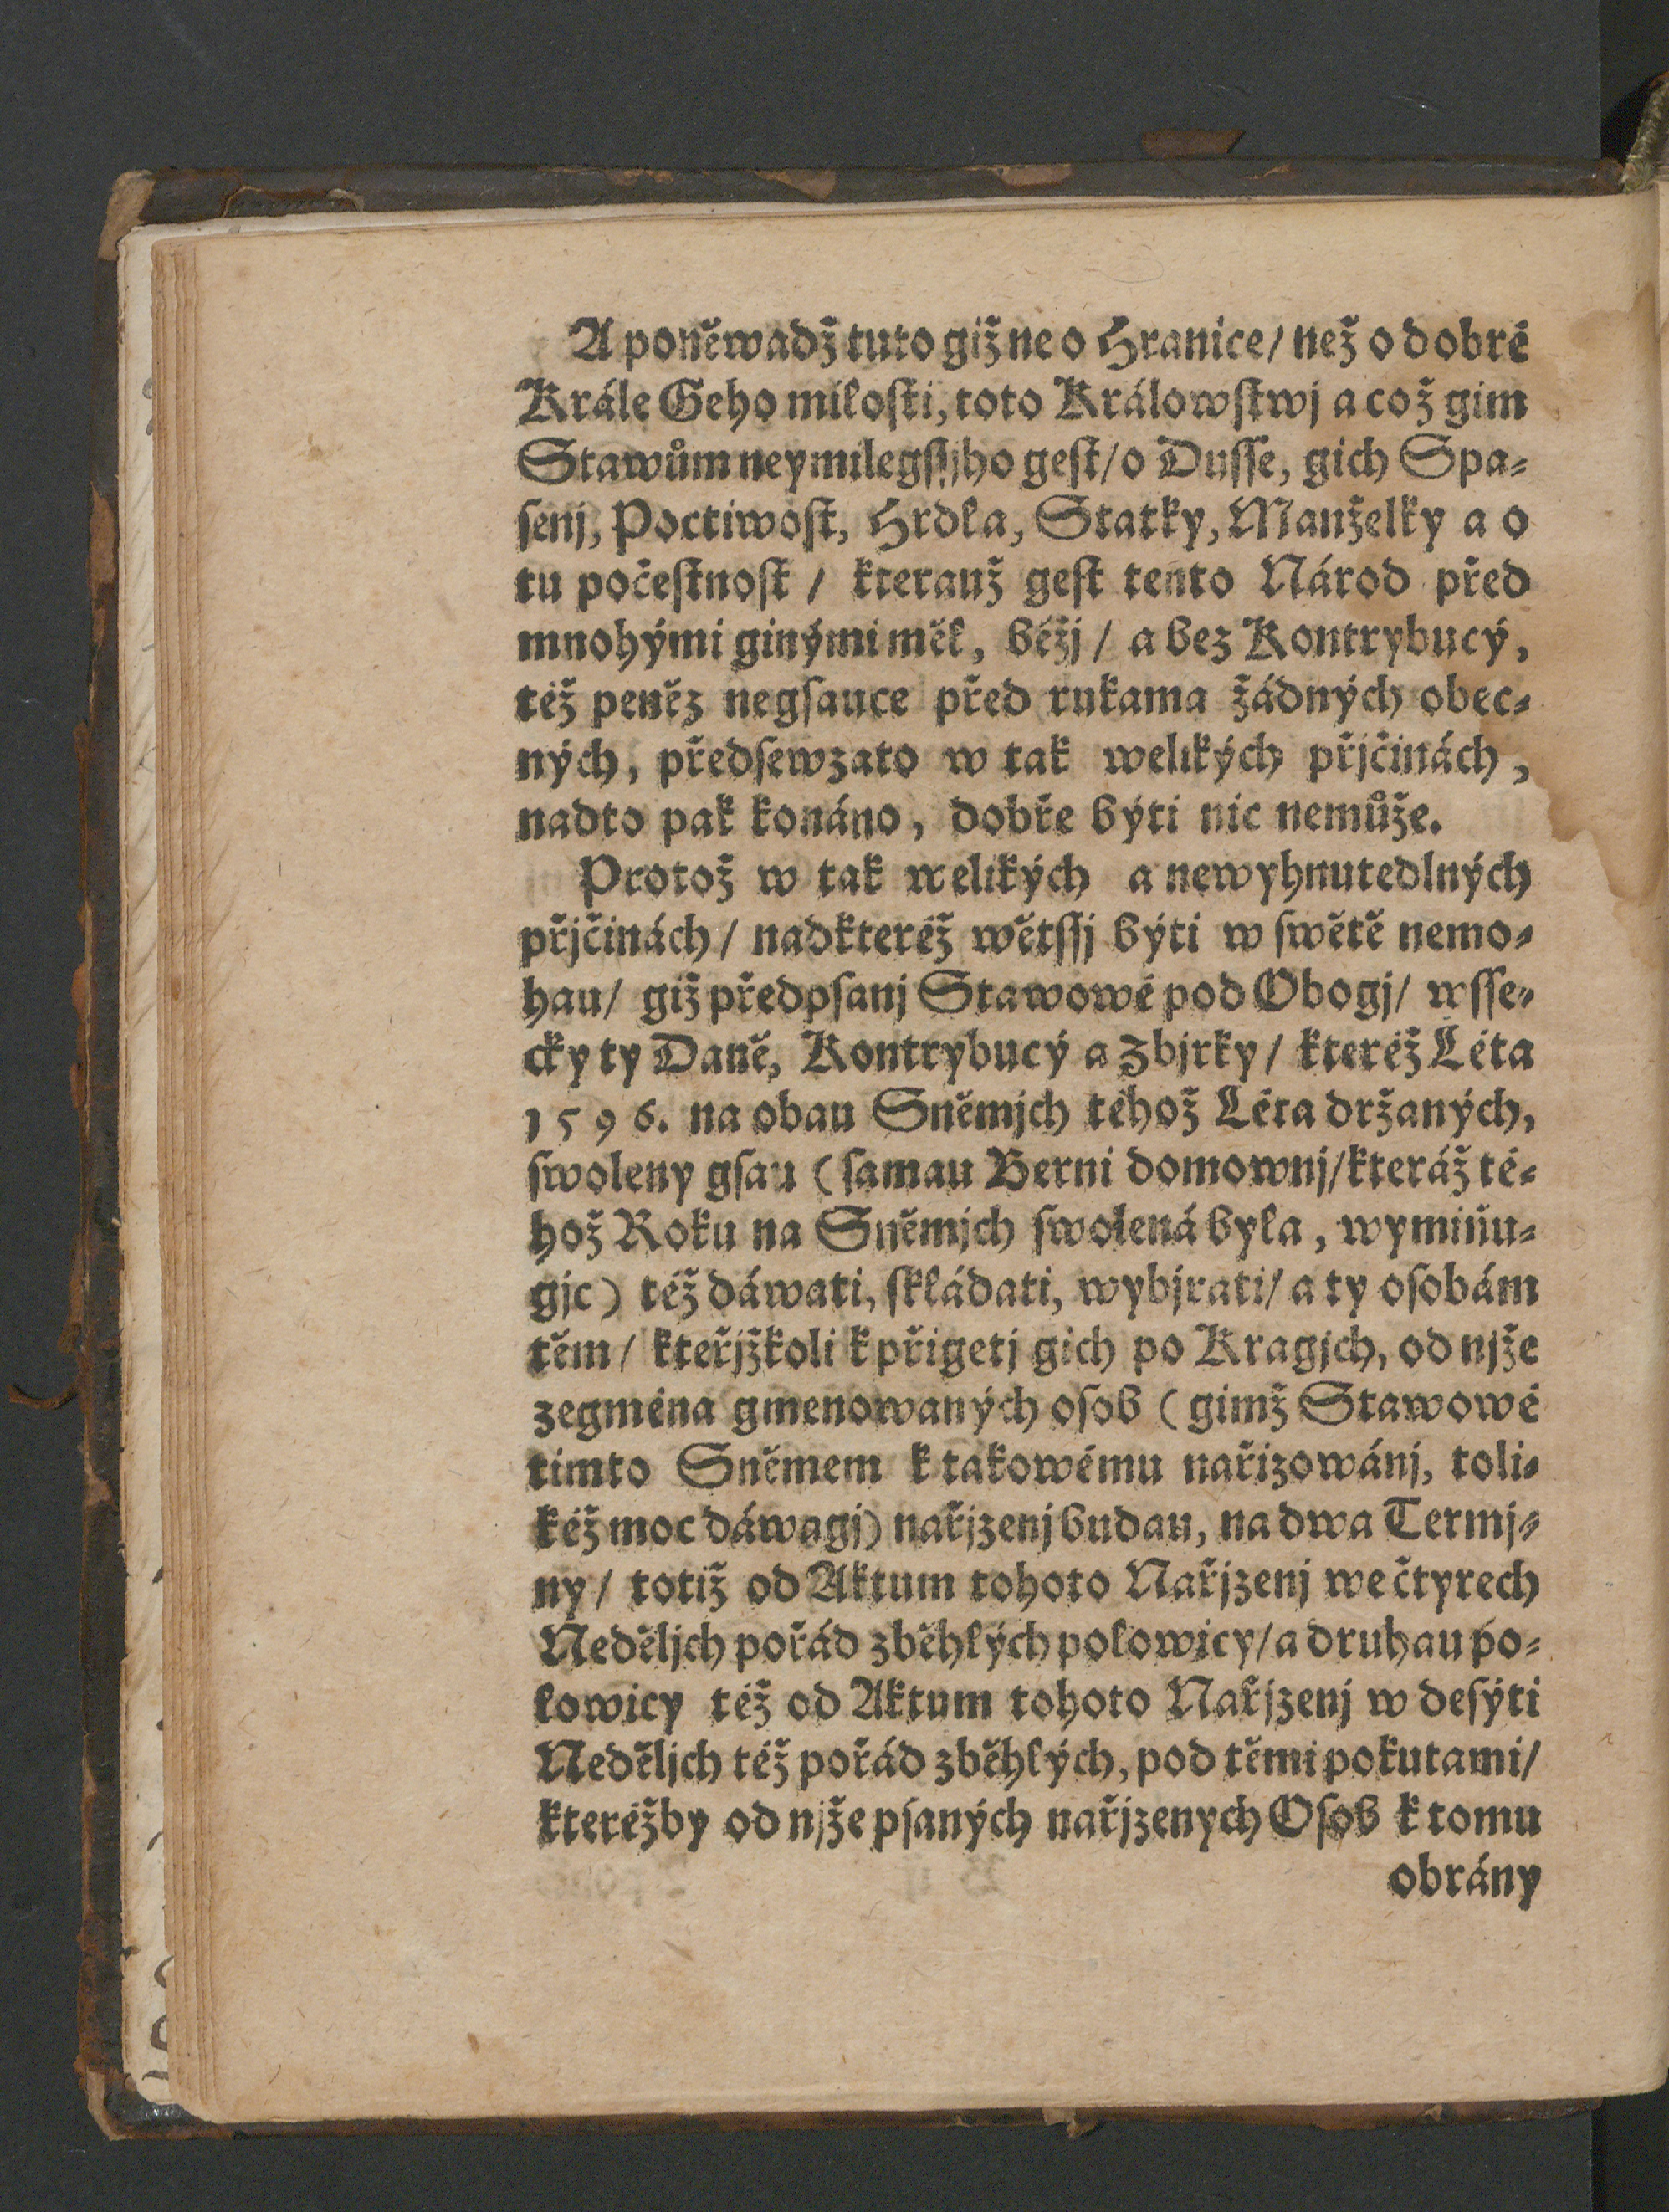 A poněwadž tuto giž ne o Hranice/ než o dobré
Krále Geho milosti, toto Králowstwj a což gim
Stawům neymilegssjho gest/ o Dusse, gich Spa-
senj, Poctiwost, Hrdla, Statky, Manželky a o
tu počestnost / kterauž gest tento Národ před
mnohými ginými měl, běžj / a bez Kontrybucý,
též peněz negsauce před rukama žádných obec-
ných, předsewzato w tak welikých přjčinách,
nadto pak konáno, dobře býti nic nemůže.
Protož w tak welikých a newyhnutedlných
přjčinách/ nadkteréž wětssj býti w swětě nemo-
hau/ giž předpsanj Stawowé pod Obogj/ wsse-
cky ty Daně, Kontrybucý a Zbjrky/ kteréž Léta
1596. na obau Sněmjch téhož Léta držaných,
swoleny gsau (samau Berni domownj/ kteráž té-
hož Roku na Sněmjch swolená byla, wymiňu-
gjc) též dáwati, skládati, wybjrati/ a ty osobám
těm/ kteřjžkoli k přigetj gich po Kragjch, od njže
zegména gmenowaných osob (gimž Stawowé
timto Sněmem k takowému nařizowánj, toli-
kéž moc dáwagj) nařjzenj budau, na dwa Termj-
ny/ totiž od Aktum tohoto Nařjzenj we čtyrech
Neděljch pořád zběhlých polowicy/ a druhau po-
lowicy též od Aktum tohoto Nařjzenj w desýti
Neděljch též pořád zběhlých, pod těmi pokutami/
kteréžby od njže psaných nařjzenych Osob k tomu
obrány